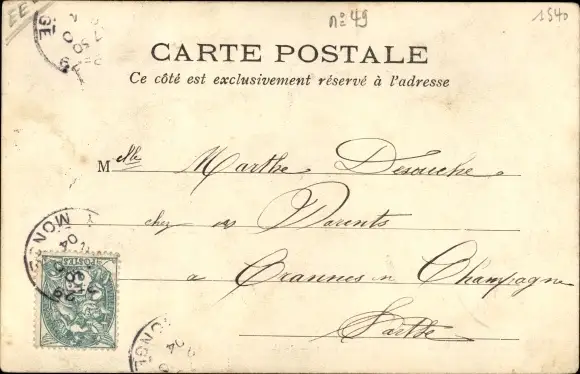 n° 49
1540
CARTE POSTALE
Ce côté est exclusivement réservé à l'adresse
Mlle Marthe Desouche
chez ses Parents
a Crannes en Champagne
Sarthe
POSTES
04